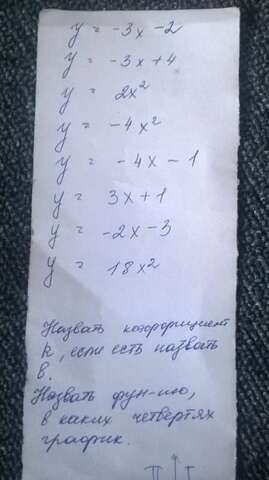 y = -3x - 2
y = -3x + 4
y = 2x²
y = -4x²
y = -4x - 1
y = 3x + 1
y = -2x - 3
y = 18x²
Назвать коэффициент
k, если есть назвать
в.
Назвать фун-ию,
в каких четвертях
график.